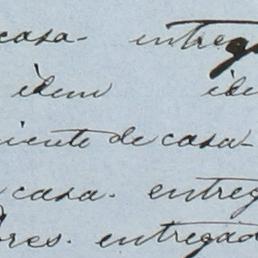 casa. entreg
idem ide
iente de casa-
casa. entreg
ores. entregad